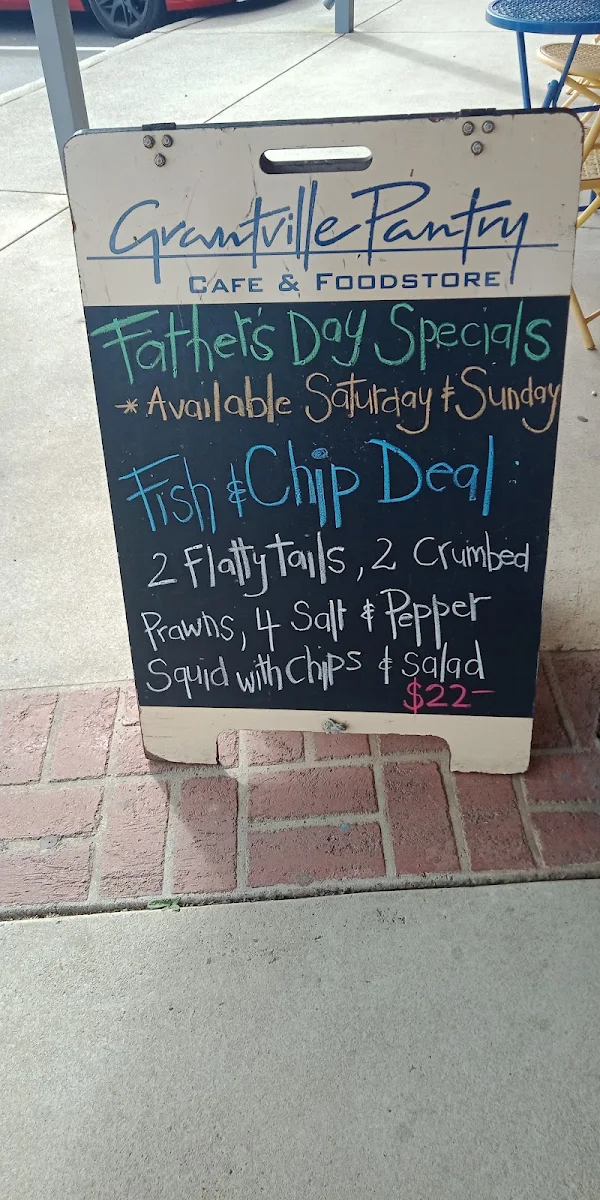 Grantville Pantry
CAFE & FOODSTORE
Father's Day Specials
* Available Saturday & Sunday
Fish & Chip Deal :
2 Flatty tails, 2 Crumbed
Prawns, 4 Salt & Pepper
Squid with Chips & Salad
$22-